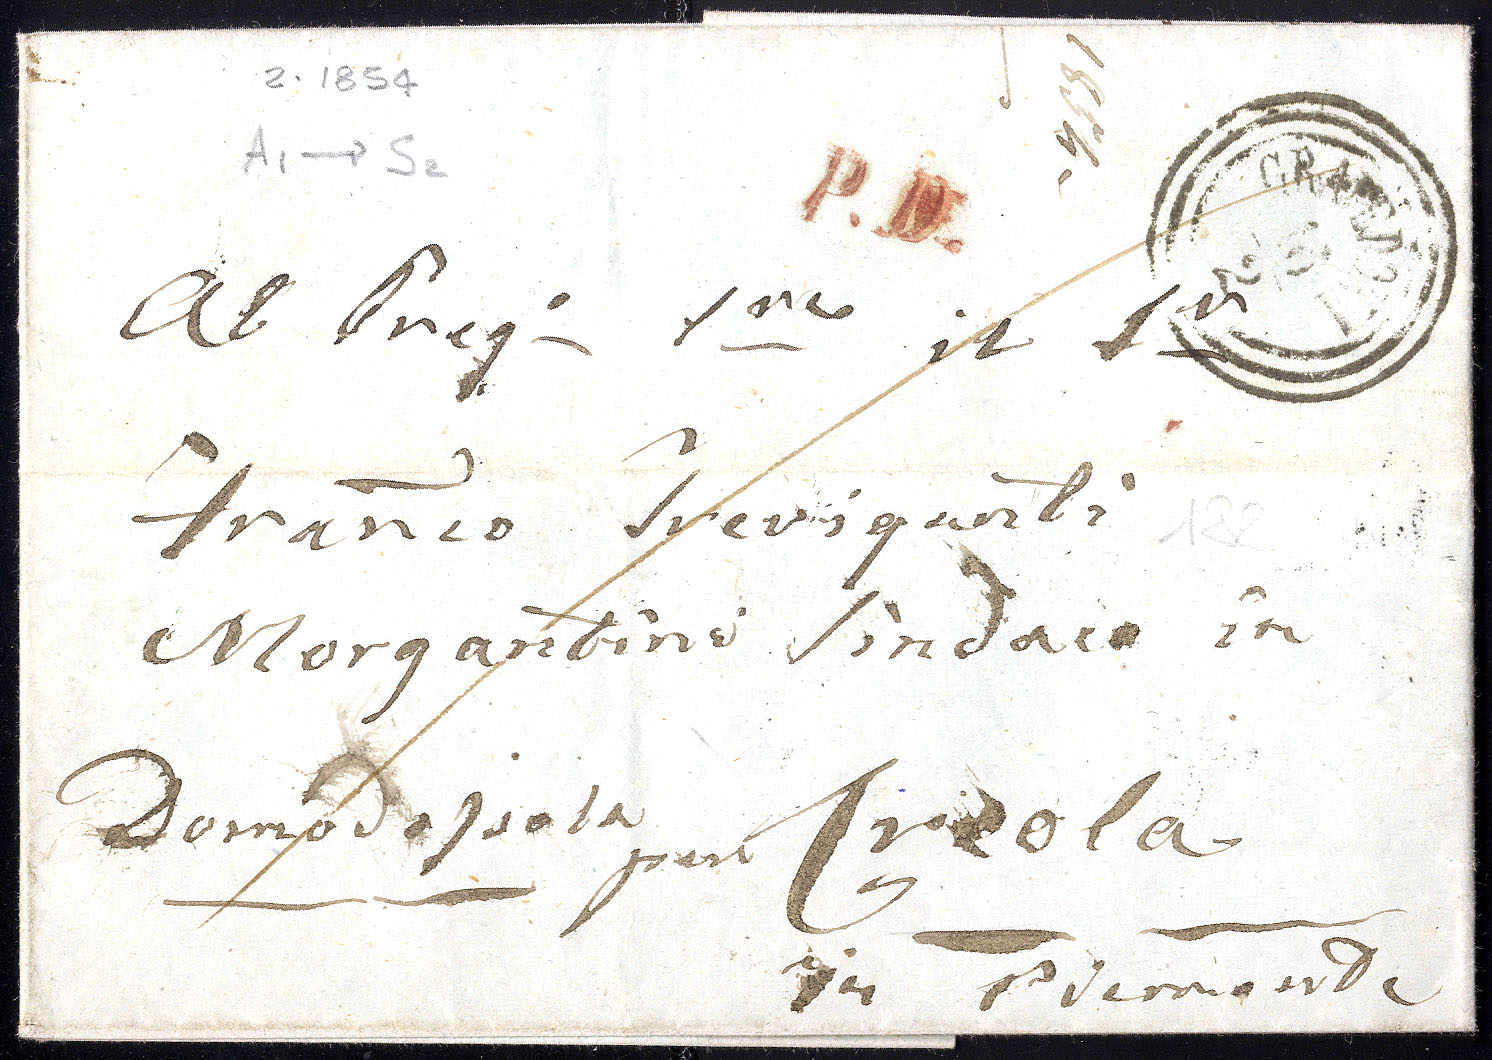 2. 1854
A1 → S2
1854
P.D.
Al Preg. Sre il Sr
Franco Trevigianti
Morgantini Sindaco in
Domodossola
per Creola
in Piemonte
122